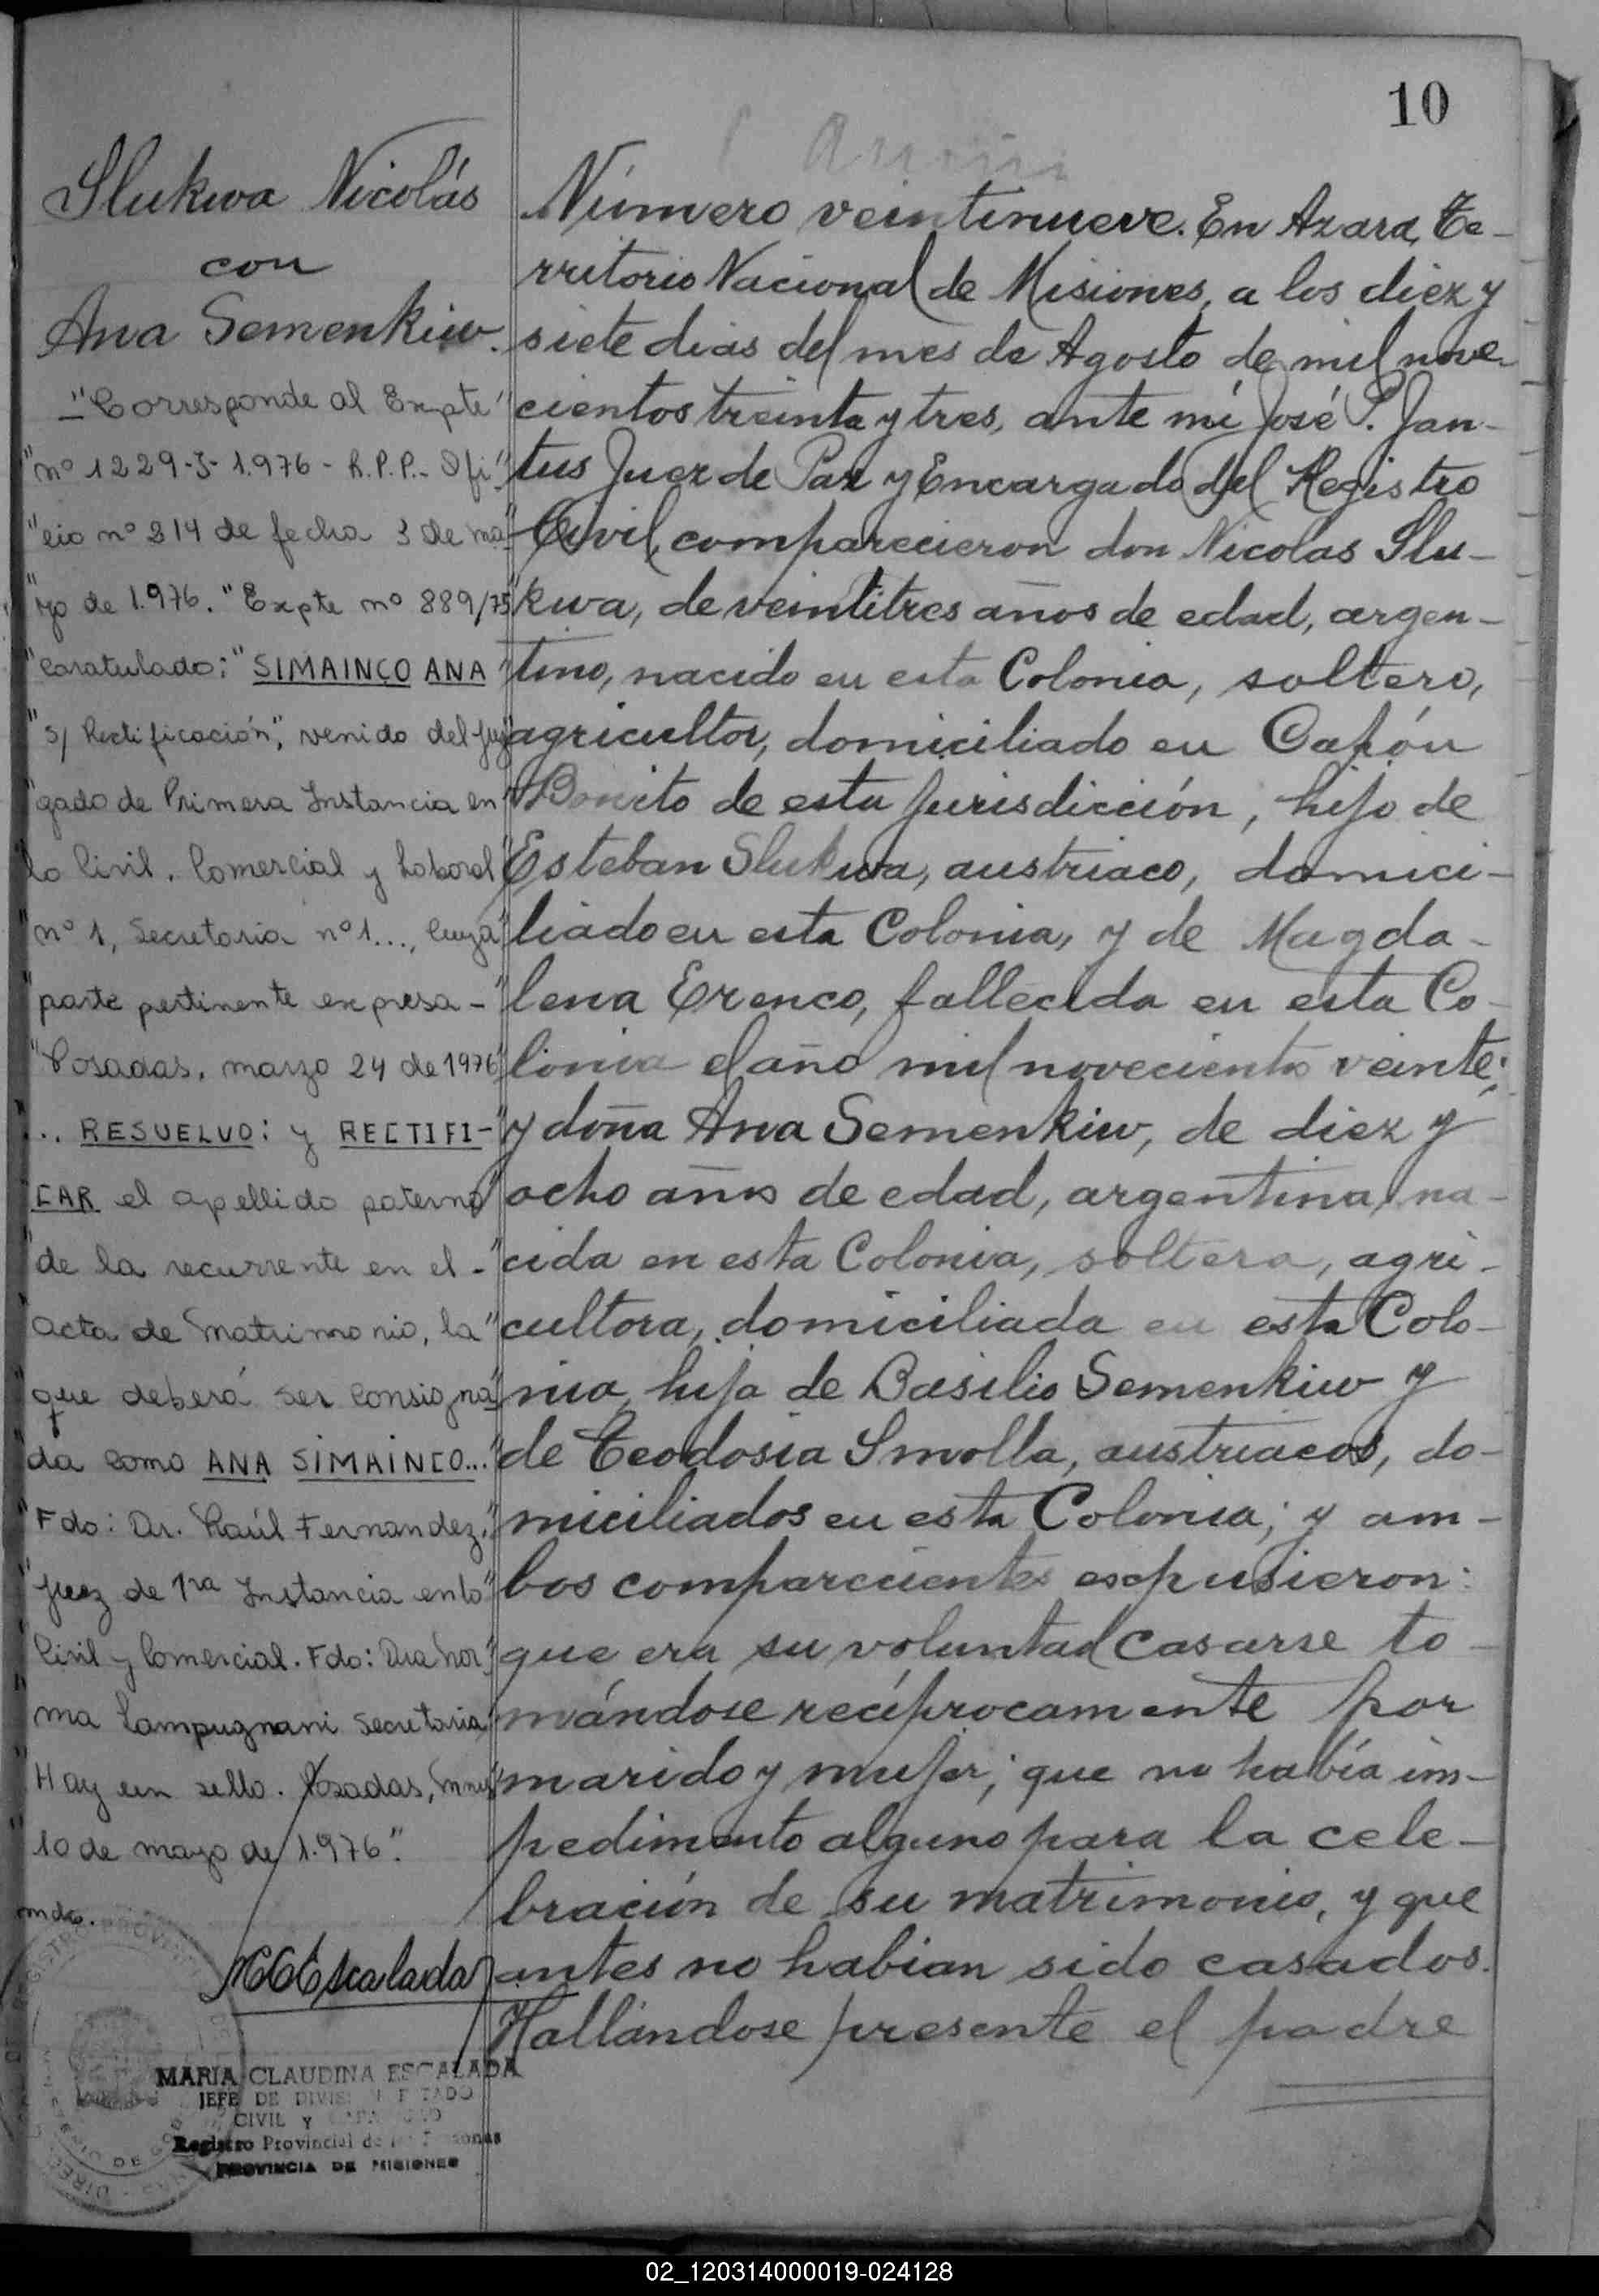 10
Slukwa Nicolás
con
Ana Semenkiw.
"Corresponde al Expte"
"nº 1229-S-1.976 - R.P.P.- Ofi"
"cio nº 214 de fecha 3 de ma"
"yo de 1.976. "Expte nº 889/75"
"Caratulado: "SIMAINCO ANA"
"s/ Rectificación", venido del Juz"
"gado de Primera Instancia en"
lo Civil, Comercial y Laboral
"nº 1, Secretaria nº 1..., cuya"
"parte pertinente expresa-"
"Posadas, marzo 24 de 1976"
... RESUELVO: y RECTIFI-
CAR el apellido paterno"
"de la recurrente en el -"
acta de Matrimonio, la"
"que deberá ser consigna"
"da como ANA SIMAINCO..."
"Fdo: Dr. Raúl Fernandez."
"Juez de 1ra Instancia en lo"
Civil y Comercial. Fdo: Dra Nor"
ma Lampugnani Secretaria"
Hay un sello. Posadas, Mnes"
10 de mayo de 1.976".
mdc.
MCEscalada
MARIA CLAUDINA ESCALADA
JEFE DE
CIVIL Y
Registro Provincial de
PROVINCIA DE MISIONES
Número veintinueve. En Azara, Te-
rritorio Nacional de Misiones, a los diez y
siete dias del mes de Agosto de mil nove-
cientos treinta y tres, ante mí José P. Jan-
tus Juez de Paz y Encargado del Registro
Civil, comparecieron don Nicolas Slu-
kwa, de veintitres años de edad, argen-
tino, nacido en esta Colonia, soltero,
agricultor, domiciliado en Capón
Bonito de esta jurisdicción, hijo de
Esteban Slukwa, austriaco, domici-
liado en esta Colonia, y de Magda-
lena Erenco, fallecida en esta Co-
lonia el año mil novecientos veinte;
y doña Ana Semenkiw, de diez y
ocho años de edad, argentina, na-
cida en esta Colonia, soltera, agri-
cultora, domiciliada en esta Colo-
nia, hija de Basilio Semenkiw y
de Teodosia Smolla, austriacos, do-
miciliados en esta Colonia; y am-
bos comparecientes expusieron:
que era su voluntad casarse to-
mándose recíprocamente por
marido y mujer; que no había im-
pedimento alguno para la cele-
bración de su matrimonio, y que
antes no habian sido casados.
Hallándose presente el padre
02_120314000019-024128